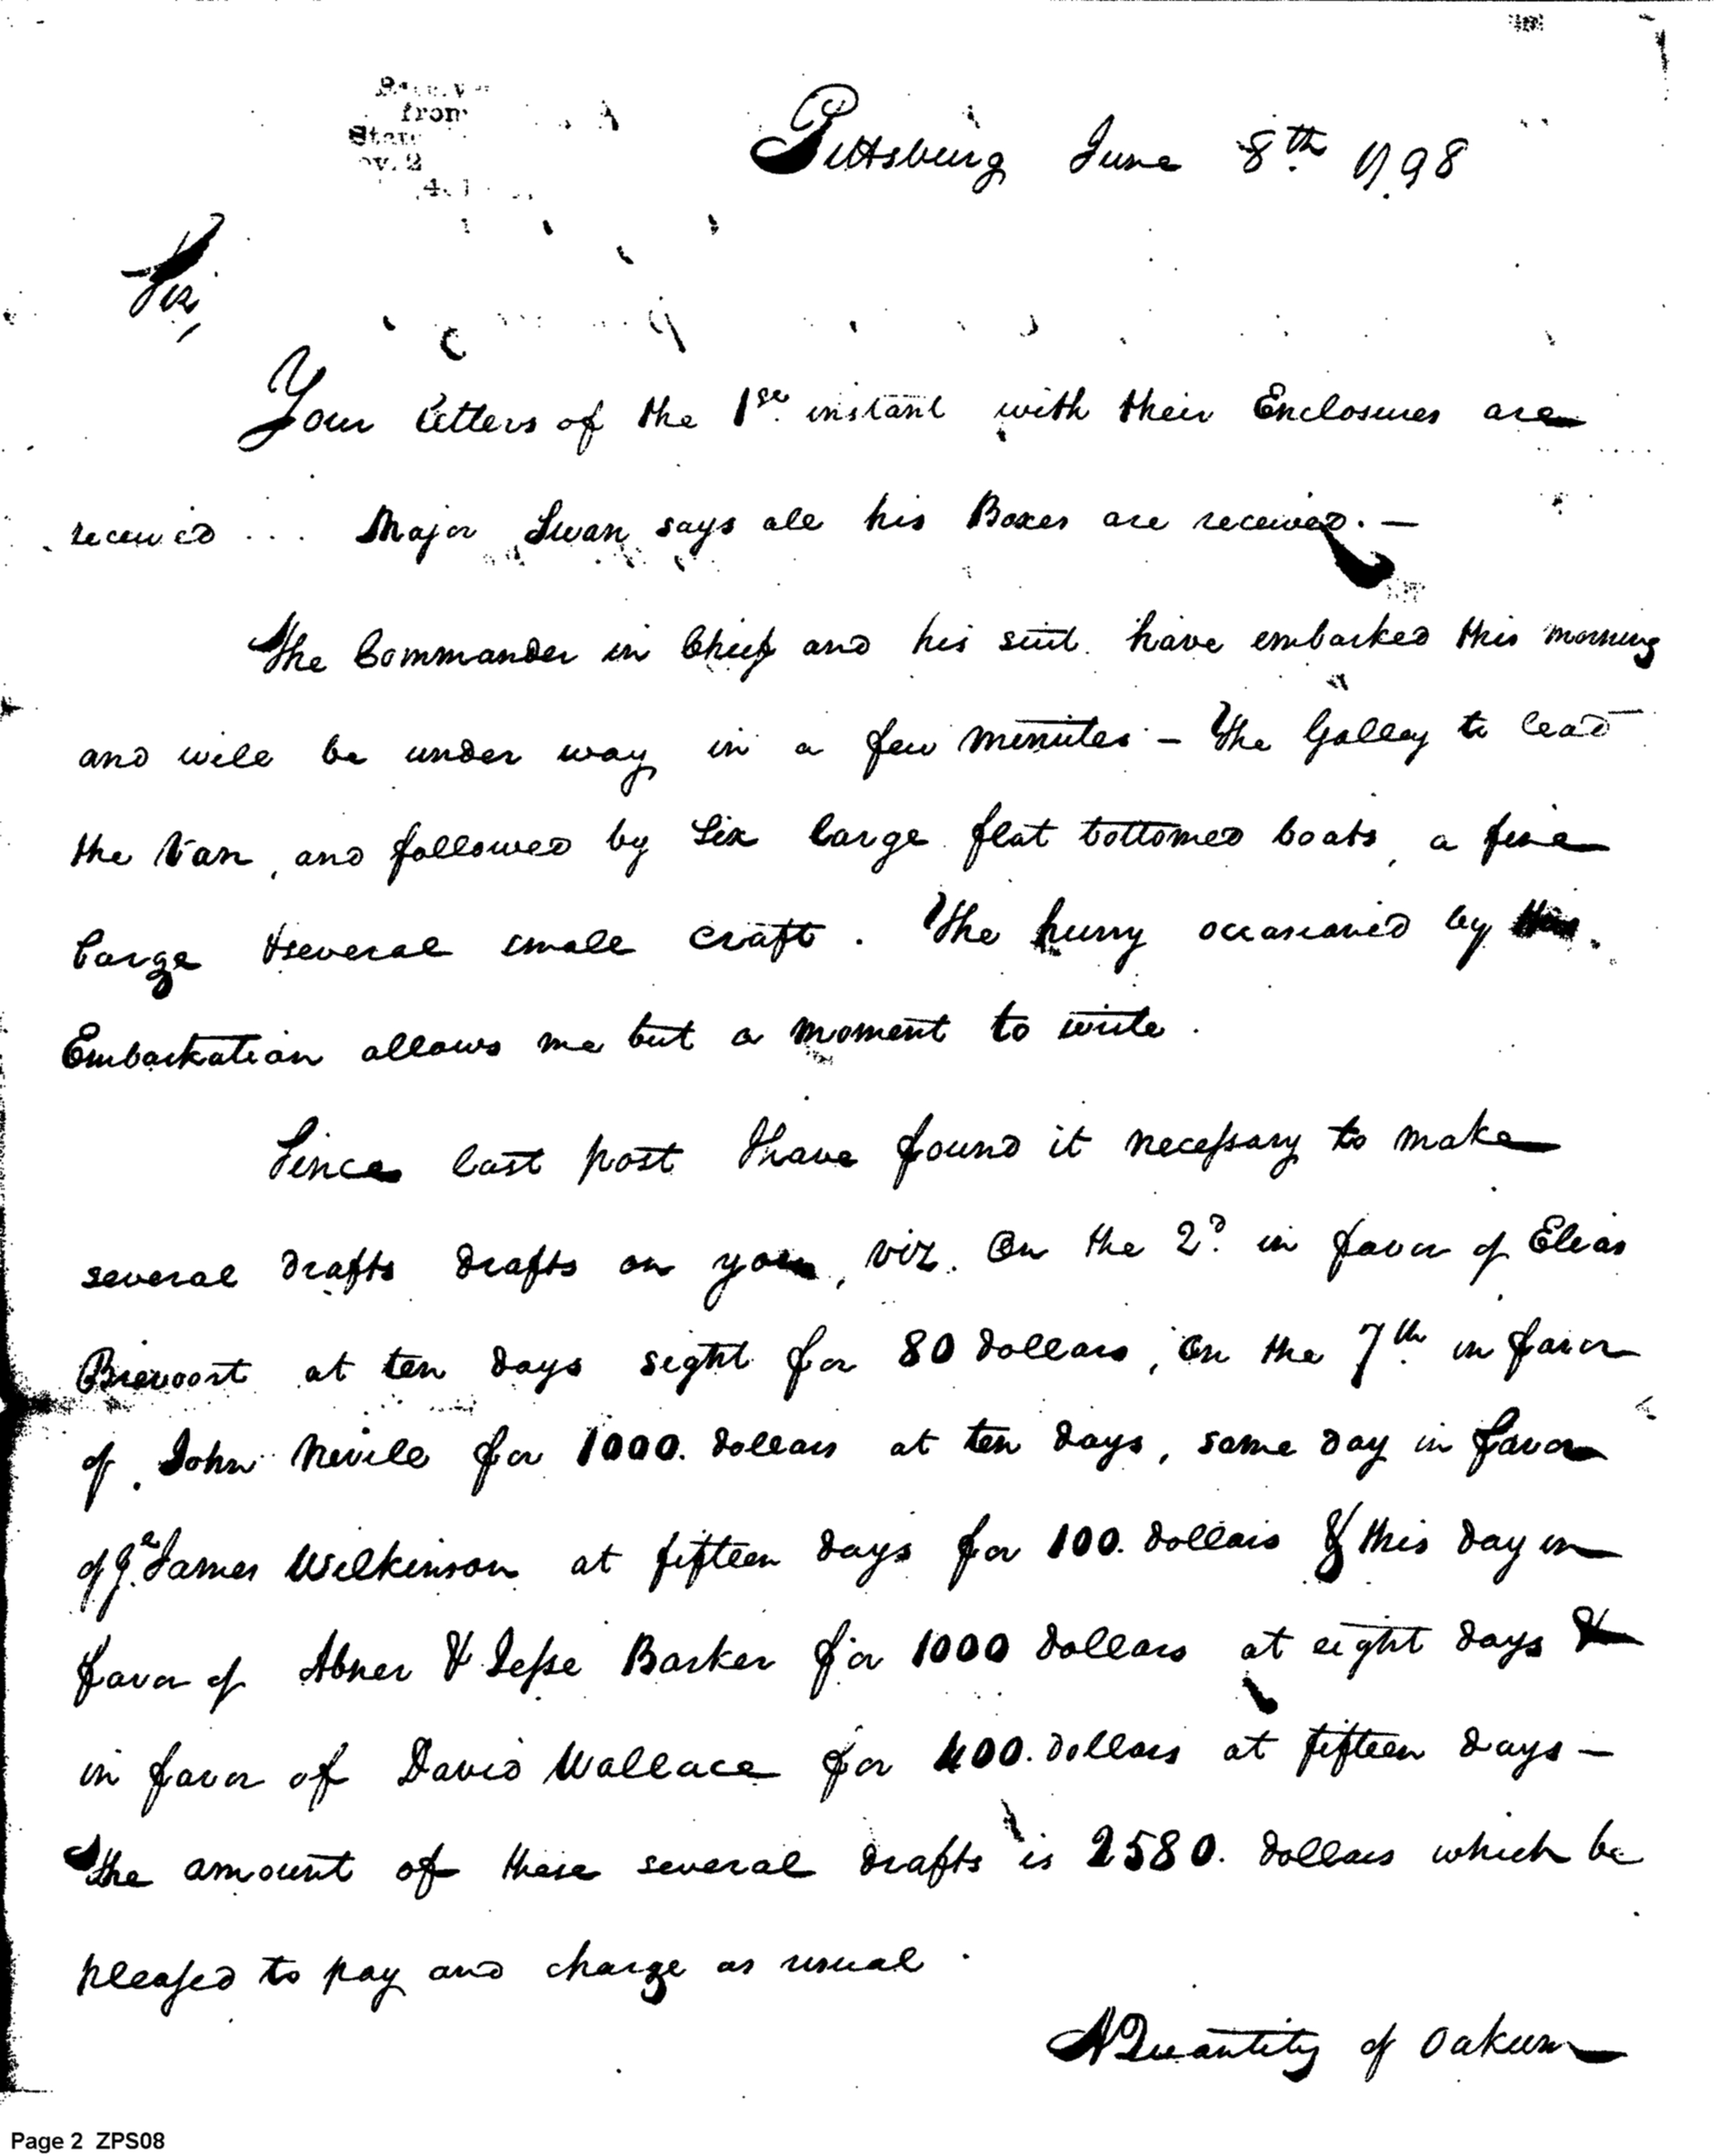 from
Pittsburg June 8th 1798
Sir,
Your letters of the 1st. instant with their Enclosures are
received ... Major Swan says all his Boxes are received. —
The Commander in Chief and his suit have embarked this morning
and will be under way in a few minutes — The Galley to lead
the Van, and followed by Six large flat bottomed boats, a fine
barge & several small craft. The hurry occasioned by this
Embarkation allows me but a moment to write.
Since last post I have found it necessary to make
several drafts drafts on you, viz. On the 2d. in favor of Elias
Brevoort at ten days sight for 80 dollars, On the 7th. in favor
of John Nevill for 1000. dollars at ten days, same day in favor
of Gl. James Wilkinson at fifteen days for 100. dollars & this day in
favor of Abner & Jesse Barker for 1000 dollars at eight days &
in favor of David Wallace for 400. dollars at fifteen days —
The amount of these several drafts is 2580. dollars which be
pleased to pay and charge as usual.
A Quantity of Oakum
Page 2 ZPS08